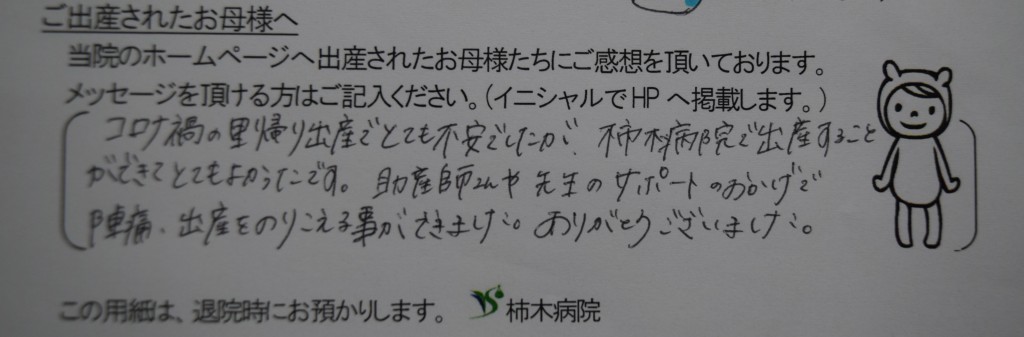 ご出産されたお母様へ
当院のホームページへ出産されたお母様たちにご感想を頂いております。
メッセージを頂ける方はご記入ください。(イニシャルでHPへ掲載します。)
コロナ禍の里帰り出産でとても不安でしたが、柿木病院で出産すること
ができてとてもよかったです。助産師さんや先生のサポートのおかげで
陣痛、出産をのりこえる事ができました。ありがとうございました。
この用紙は、退院時にお預かりします。 柿木病院